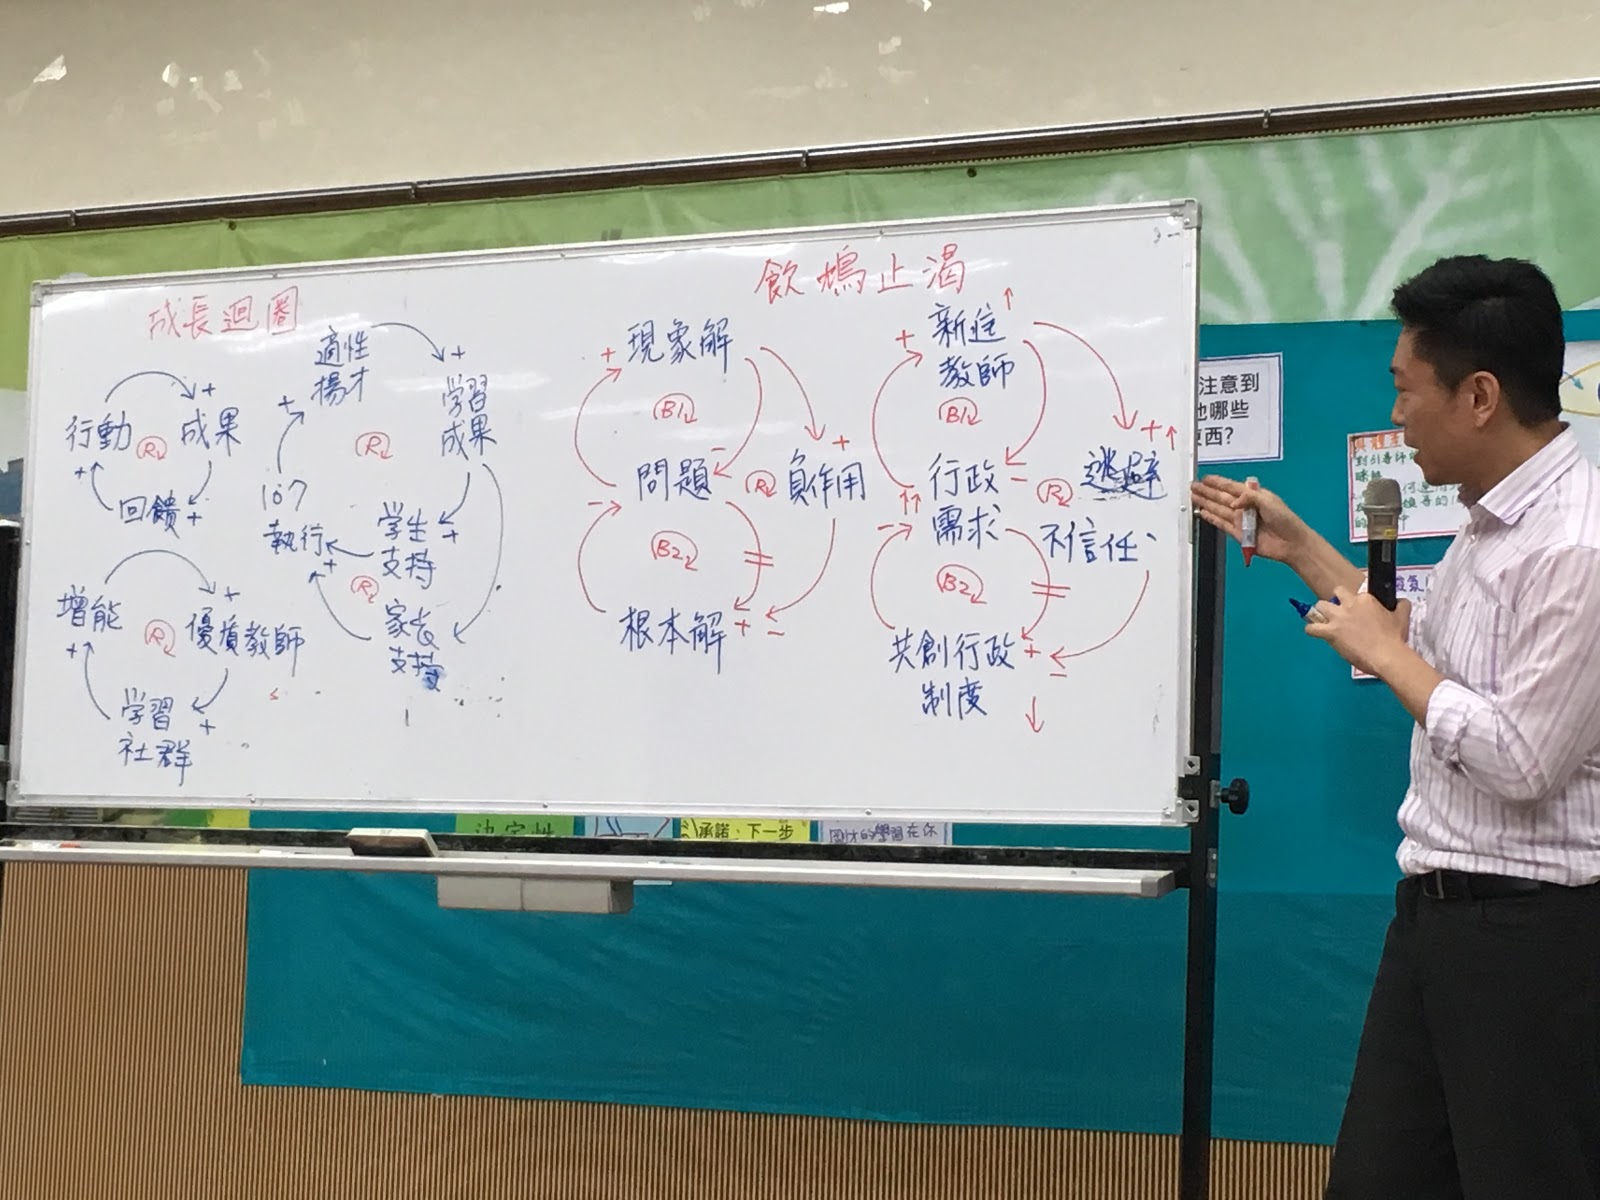 成長迴圈
行動
+
成果
+
回饋
+
R
增能
+
優質教師
+
学習
社群
+
R
適性
揚才
+
学習
成果
+
R
107
執行
+
学生
支持
+
R
家長
支持
飲鴆止渴
現象解
+
B1
問題
-
-
R
負作用
+
B2
根本解
+
-
新進
教師
+
B1
行政
需求
-
-
R
逃避
+
不信任
B2
共創行政
制度
+
-
注意到
他哪些
東西?
決定性
承諾:下一步